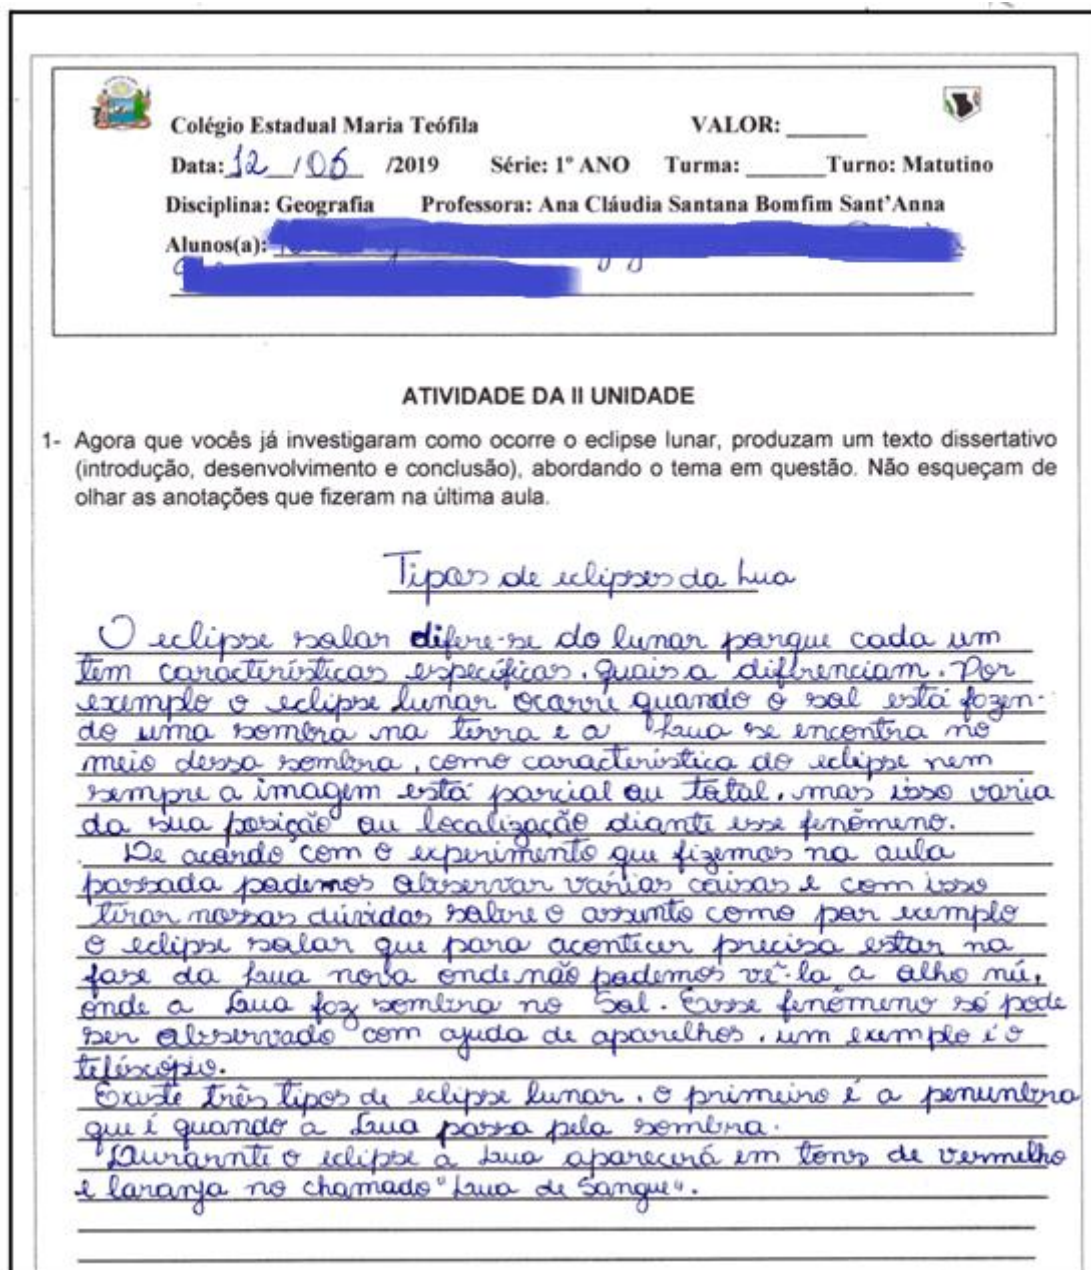 Colégio Estadual Maria Teófila VALOR: ______
Data: 12 / 06 /2019 Série: 1º ANO Turma: ______ Turno: Matutino
Disciplina: Geografia Professora: Ana Cláudia Santana Bomfim Sant'Anna
Alunos(a):
ATIVIDADE DA II UNIDADE
1- Agora que vocês já investigaram como ocorre o eclipse lunar, produzam um texto dissertativo
(introdução, desenvolvimento e conclusão), abordando o tema em questão. Não esqueçam de
olhar as anotações que fizeram na última aula.
Tipos de eclipses da Lua
O eclipse solar difere-se do lunar porque cada um
tem características específicas, quais a difrenciam. Por
exemplo o eclipse lunar ocorre quando o sol está fazen-
do uma sombra na terra e a Lua se encontra no
meio dessa sombra, como característica do eclipse nem
sempre a imagem está parcial ou total, mas isso varia
da sua posição ou localização diante esse fenômeno.
De acordo com o experimento que fizemos na aula
passada podemos observar várias coisas e com isso
tirar nossas dúvidas sobre o assunto como por exemplo
o eclipse solar que para acontecer precisa estar na
fase da Lua nova onde não podemos vê-la a olho nú,
onde a Lua faz sombra no Sol. Esse fenômeno só pode
ser observado com ajuda de aparelhos, um exemplo é o
teléscópio.
Existe três tipos de eclipse lunar, o primeiro é a penumbra
que é quando a Lua passa pela sombra.
Durannte o eclipse a Lua aparecerá em tons de vermelho
e laranja no chamado "Lua de Sangue".